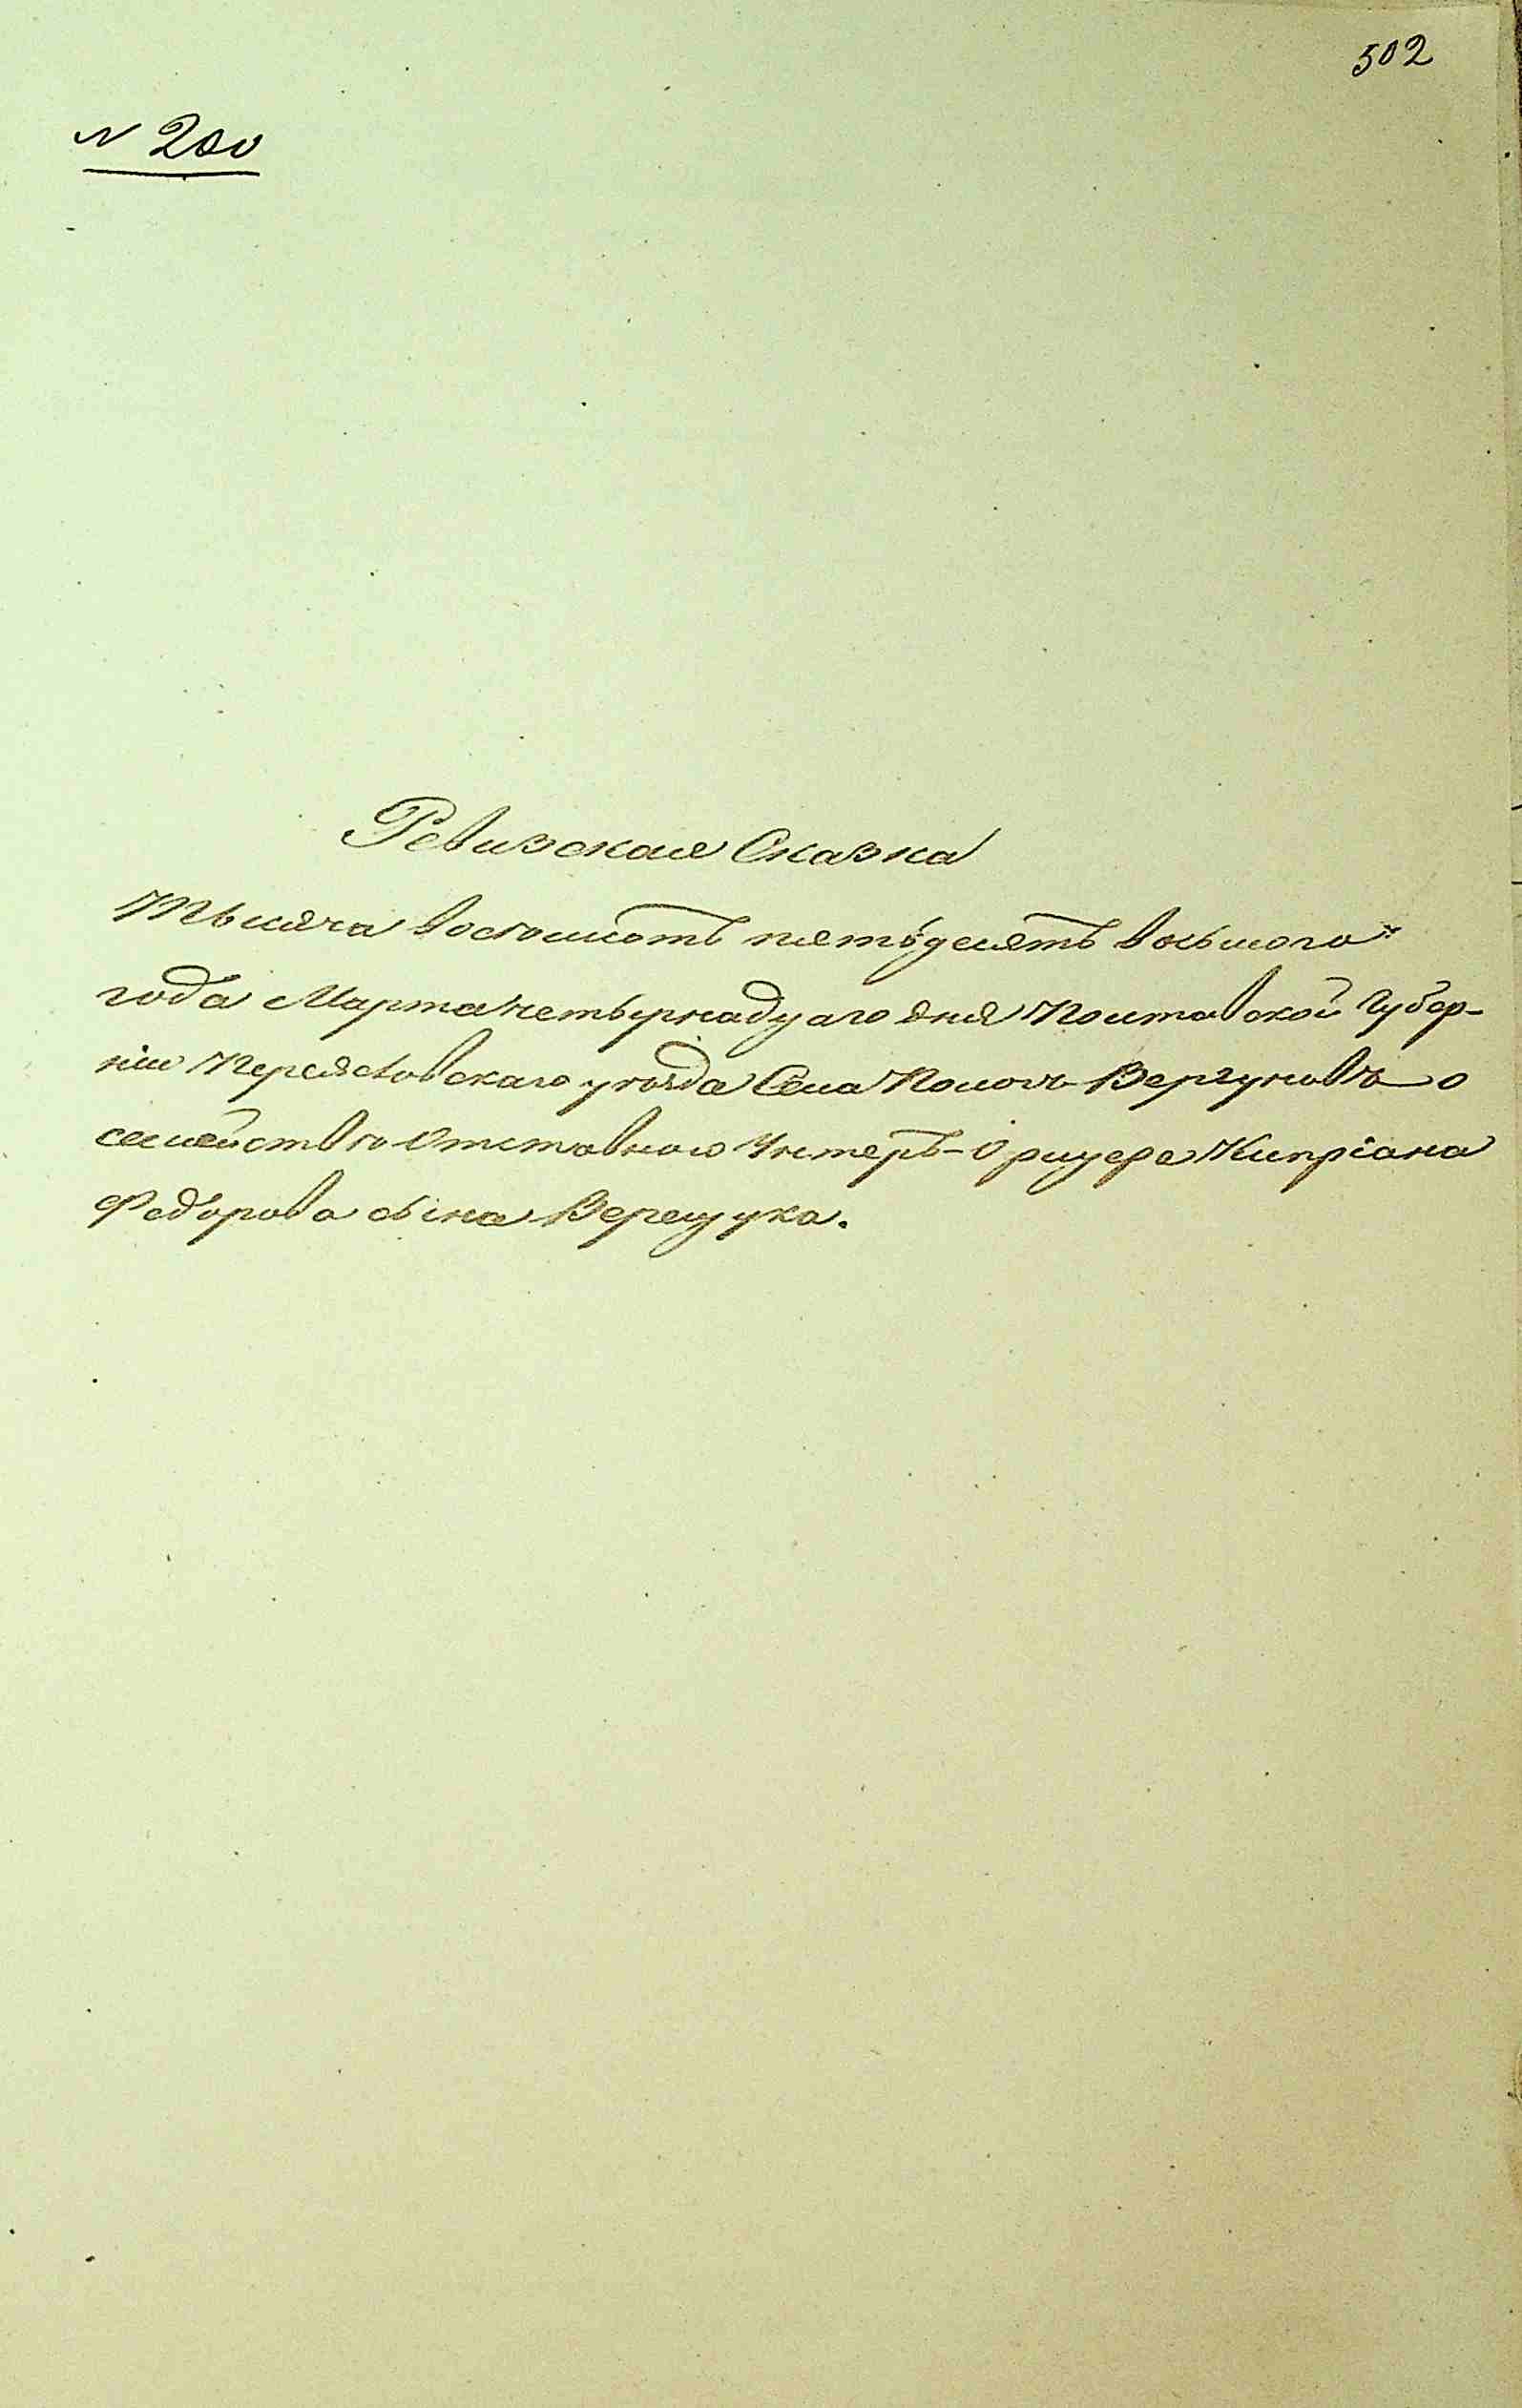 502
N 200
Ревизская Сказка
Тысяча восемьсотъ пятьдесятъ восьмого
года Марта четырнадцаго дня Полтавской Губер-
ніи Переяславскаго уѣзда Села Помокъ Вергуновъ о
семействѣ Отставного Унтеръ-Офицера Кипріана
Федорова сына Верещука.